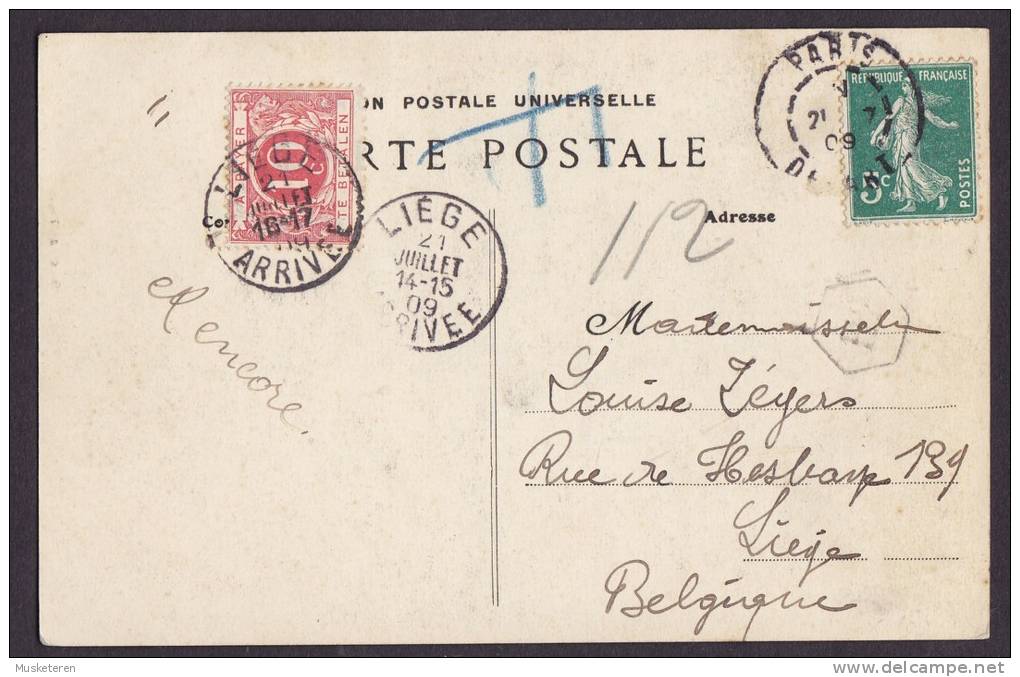 ON POSTALE UNIVERSELLE
RTE POSTALE
Cor
Adresse
A PAYER
TE BETALEN
10
LIEGE
21
JUILLET
16-17
09
ARRIVEE
LIÉGE
21
JUILLET
14-15
09
RIVEE
PARIS
21
09
DEPART
REPUBLIQUE FRANÇAISE
5c
POSTES
T
112
11
Et encore.
Mademoiselle
Louise Zéyers
Rue de Hesbaye 139
Liège
Belgique
Musketeren
delcampe.net